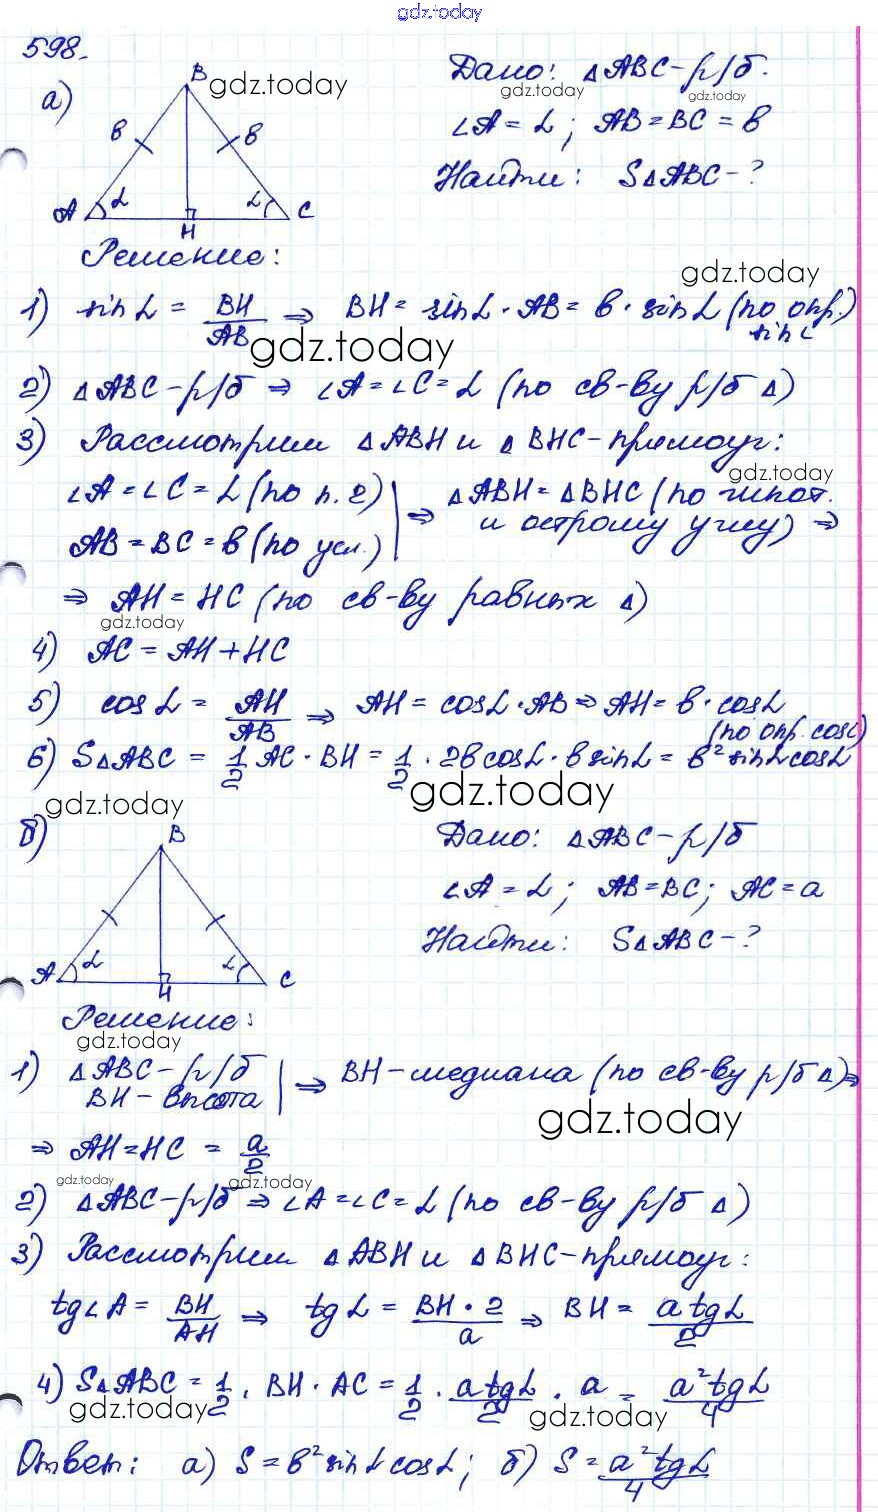 gdz.today
598.
а)
B
gdz.today
Дано: ΔABC - р/б.
gdz.today
gdz.today
в в
∠A = α; AB = BC = в
Найти: SΔABC - ?
A α α C
H
Решение:
gdz.today
1) sin α = BH/AB ⇒ BH = sin α · AB = в · sin α (по опр. sin α)
gdz.today
2) ΔABC - р/б ⇒ ∠A = ∠C = α (по св-ву р/б Δ)
3) Рассмотрим ΔABH и ΔBHC - прямоуг:
gdz.today
∠A = ∠C = α (по п. 2) | ⇒ ΔABH = ΔBHC (по гипот.
AB = BC = в (по усл.) | и острому углу) ⇒
⇒ AH = HC (по св-ву равных Δ)
gdz.today
4) AC = AH + HC
5) cos α = AH/AB ⇒ AH = cos α · AB ⇒ AH = в · cos α
(по опр. cos α)
6) SΔABC = 1/2 AC · BH = 1/2 · 2в cos α · в sin α = в² sin α cos α
gdz.today
gdz.today
б)
B
Дано: ΔABC - р/б
∠A = α; AB = BC; AC = a
Найти: SΔABC - ?
A α α C
H
Решение:
gdz.today
1) ΔABC - р/б | ⇒ BH - медиана (по св-ву р/б Δ) ⇒
BH - высота |
gdz.today
⇒ AH = HC = a/2
gdz.today
gdz.today
2) ΔABC - р/б ⇒ ∠A = ∠C = α (по св-ву р/б Δ)
3) Рассмотрим ΔABH и ΔBHC - прямоуг:
tg∠A = BH/AH ⇒ tg α = BH · 2/a ⇒ BH = a tg α/2
4) SΔABC = 1/2 · BH · AC = 1/2 · a tg α/2 · a = a² tg α/4
gdz.today
gdz.today
Ответ: а) S = в² sin α cos α; б) S = a² tg α/4